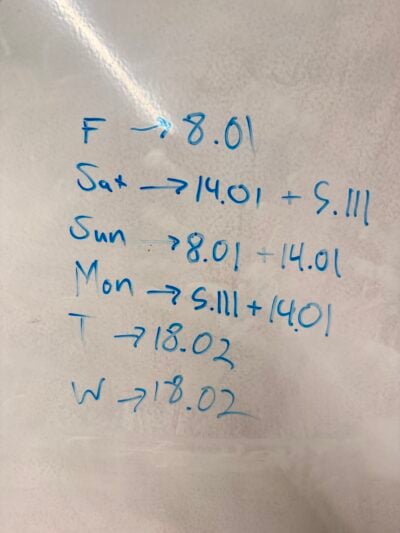 F → 8.01
Sat → 14.01 + 5.111
Sun → 8.01 + 14.01
Mon → 5.111 + 14.01
T → 18.02
W → 18.02